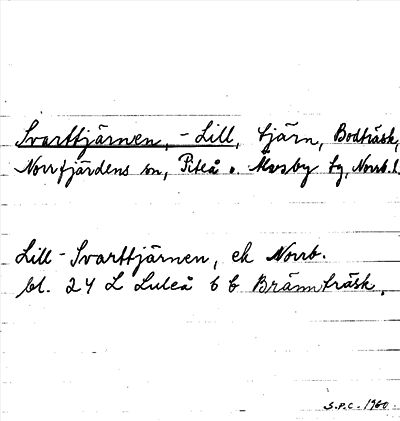 Svarttjärnen, - Lill, tjärn, Bodträsk,
Norrfjärdens sn, Piteå o. Älvsby tg, Norrb. l.
Lill-Svarttjärnen, ek Norrb.
bl. 24 L Luleå 6 b Brännträsk.
S.P.C. 1960.